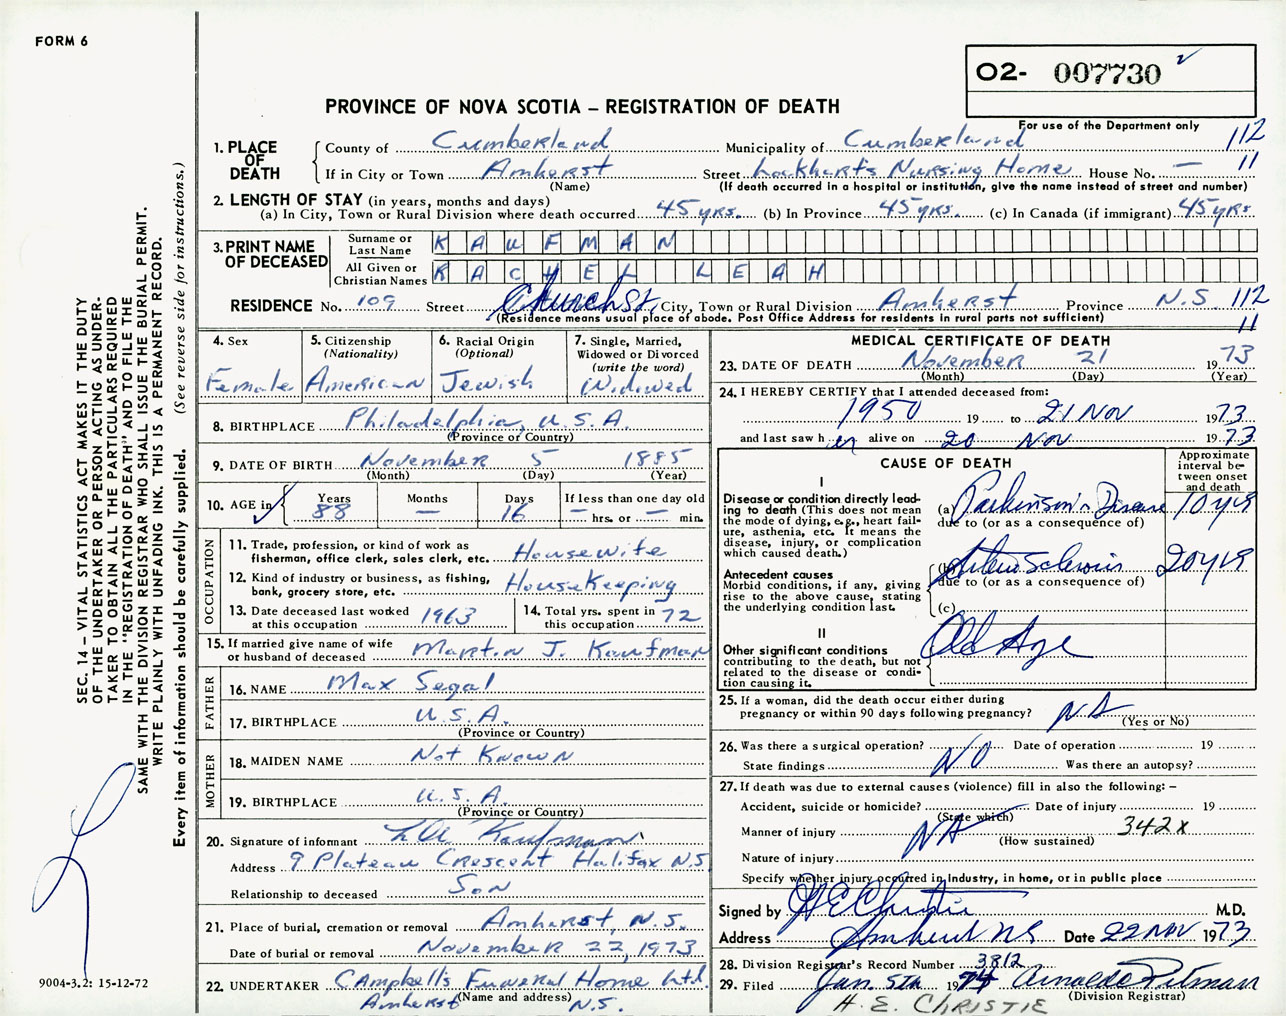 FORM 6
O2- 007730
For use of the Department only
PROVINCE OF NOVA SCOTIA – REGISTRATION OF DEATH
1. PLACE OF DEATH
County of Cumberland Municipality of Cumberland 112
If in City or Town Amherst Street Lockhart's Nursing Home House No. — 11
(Name) (If death occurred in a hospital or institution, give the name instead of street and number)
2. LENGTH OF STAY (in years, months and days)
(a) In City, Town or Rural Division where death occurred 45 yrs. (b) In Province 45 yrs. (c) In Canada (if immigrant) 45 yrs.
3. PRINT NAME OF DECEASED
Surname or Last Name KAUFMAN
All Given or Christian Names RACHEL LEAH
RESIDENCE No. 109 Street Church St. City, Town or Rural Division Amherst Province N.S. 112
(Residence means usual place of abode. Post Office Address for residents in rural parts not sufficient) 11
4. Sex
Female
5. Citizenship
(Nationality)
American
6. Racial Origin
(Optional)
Jewish
7. Single, Married,
Widowed or Divorced
(write the word)
Widowed
8. BIRTHPLACE Philadelphia, U.S.A.
(Province or Country)
9. DATE OF BIRTH November 5 1885
(Month) (Day) (Year)
10. AGE in Years Months Days If less than one day old
88 — 16 — hrs. or — min.
OCCUPATION
11. Trade, profession, or kind of work as
fisherman, office clerk, sales clerk, etc. Housewife
12. Kind of industry or business, as fishing,
bank, grocery store, etc. Housekeeping
13. Date deceased last worked
at this occupation 1963
14. Total yrs. spent in
this occupation 72
15. If married give name of wife
or husband of deceased Martin J. Kaufman
FATHER
16. NAME Max Segal
17. BIRTHPLACE U.S.A.
(Province or Country)
MOTHER
18. MAIDEN NAME Not Known
19. BIRTHPLACE U.S.A.
(Province or Country)
20. Signature of informant Kaufman
Address 9 Plateau Crescent Halifax N.S.
Relationship to deceased Son
21. Place of burial, cremation or removal Amherst, N.S.
Date of burial or removal November 22, 1973
22. UNDERTAKER Campbell's Funeral Home Ltd.
(Name and address)
Amherst N.S.
MEDICAL CERTIFICATE OF DEATH
23. DATE OF DEATH November 21 1973
(Month) (Day) (Year)
24. I HEREBY CERTIFY that I attended deceased from:
1950 19 to 21 Nov 1973
and last saw her alive on 20 Nov 1973
CAUSE OF DEATH
Approximate
interval be-
tween onset
and death
I
Disease or condition directly lead-
ing to death (This does not
mean the mode of dying, e.g., heart fail-
ure, asthenia, etc. It means the
disease, injury, or complication
which caused death.)
(a) Parkinson's Disease 10 yrs
due to (or as a consequence of)
Antecedent causes
Morbid conditions, if any, giving
rise to the above cause, stating
the underlying condition last.
(b) Arterio Sclerosis 20 yrs
due to (or as a consequence of)
(c)
II
Other significant conditions
contributing to the death, but not
related to the disease or condi-
tion causing it.
Old Age
25. If a woman, did the death occur either during
pregnancy or within 90 days following pregnancy? NA
(Yes or No)
26. Was there a surgical operation? NO Date of operation 19
State findings Was there an autopsy?
27. If death was due to external causes (violence) fill in also the following: –
Accident, suicide or homicide? Date of injury 19
(State which)
Manner of injury NA 342x
(How sustained)
Nature of injury
Specify whether injury occurred in Industry, in home, or in public place
Signed by H E Christie M.D.
Address Amherst NS Date 22 Nov 1973
28. Division Registrar's Record Number 3812
29. Filed Jan. 5th 1974 Pitman
(Division Registrar)
H. E. CHRISTIE
SEC. 14 – VITAL STATISTICS ACT MAKES IT THE DUTY
OF THE UNDERTAKER OR PERSON ACTING AS UNDER-
TAKER TO OBTAIN ALL THE PARTICULARS REQUIRED
IN THE "REGISTRATION OF DEATH" AND TO FILE THE
SAME WITH THE DIVISION REGISTRAR WHO SHALL ISSUE THE BURIAL PERMIT.
WRITE PLAINLY WITH UNFADING INK. THIS IS A PERMANENT RECORD.
Every item of information should be carefully supplied. (See reverse side for instructions.)
9004-3.2: 15-12-72